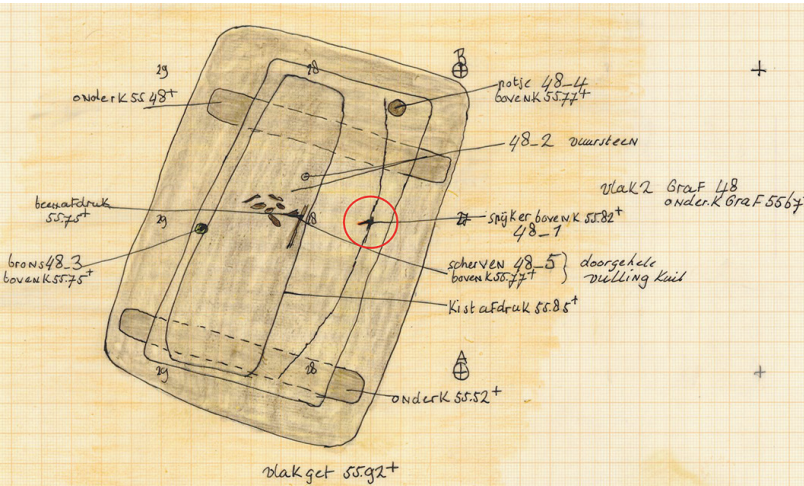 B
29
28
potje 48-4
bovenK 55.77+
onderK 55.48+
48-2 vuursteen
vlak 2 Graf 48
onderK Graf 55.67
beenafdruk
55.75+
29
28
27
spijker bovenK 55.82+
48-1
brons 48-3
bovenK 55.75+
scherven 48-5
bovenK 55.77+
doorgehele
vulling Kuil
Kistafdruk 55.85+
A
29
28
onderK 55.52+
vlak get 55.92+